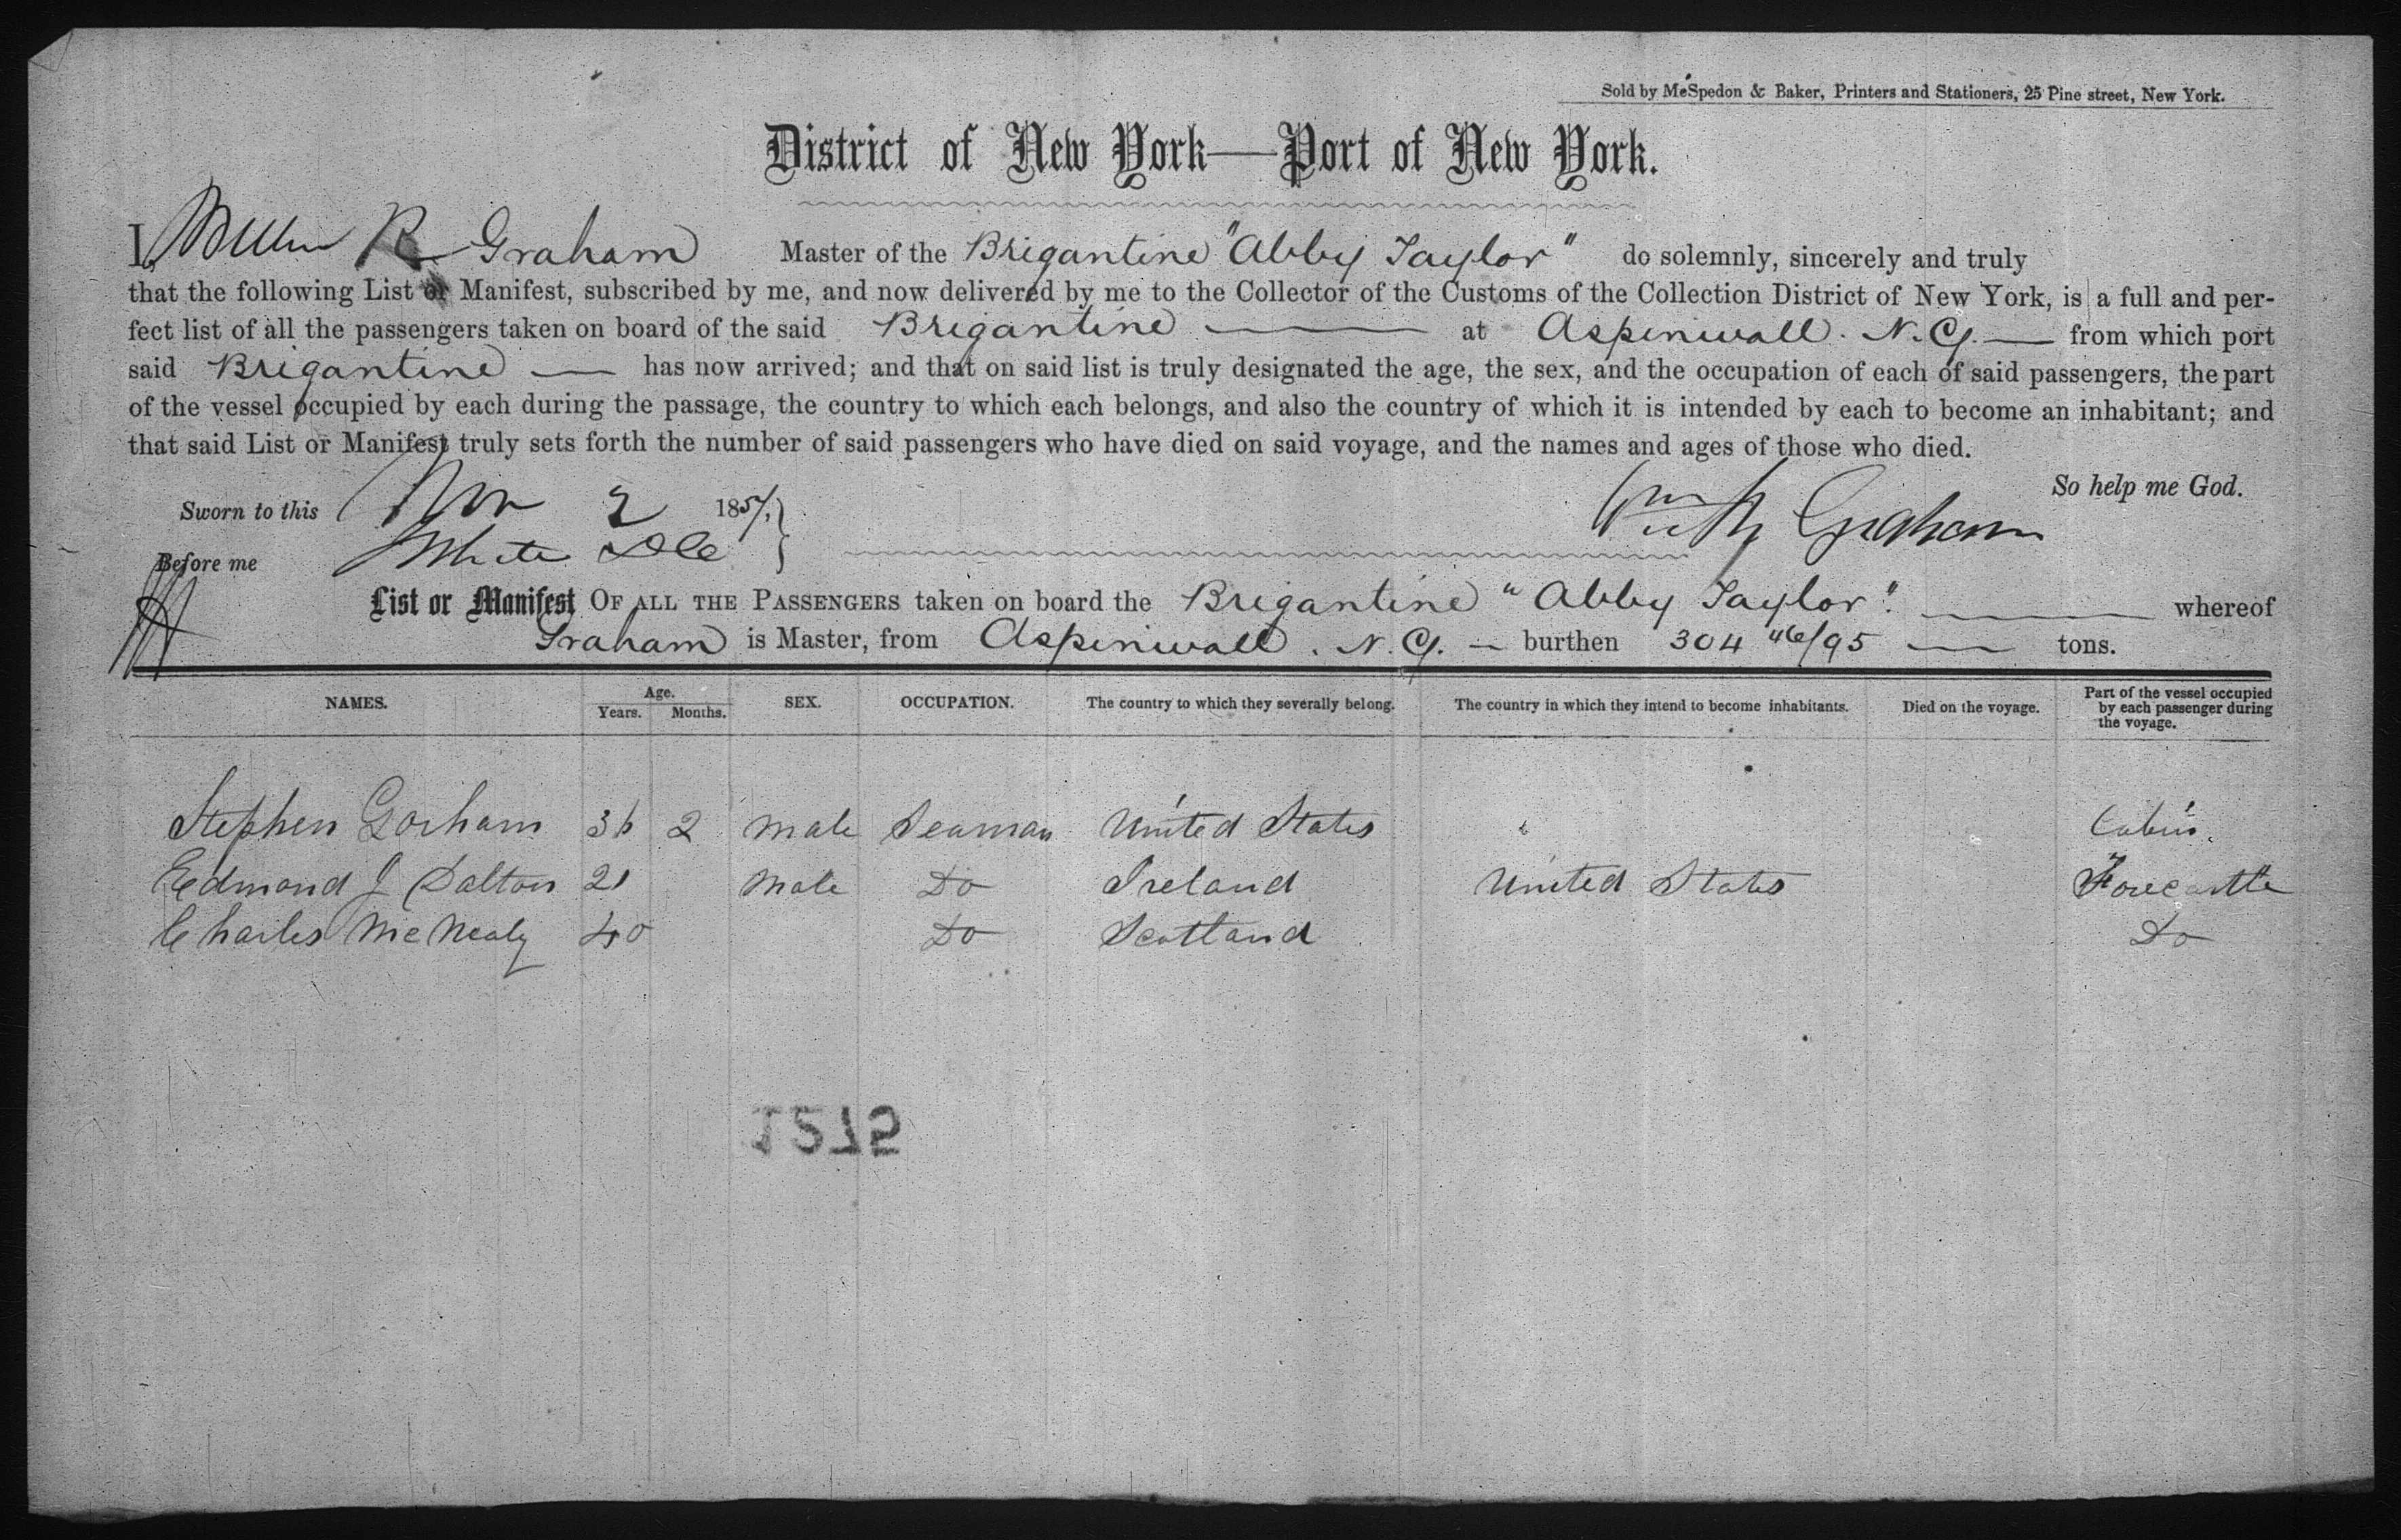 Sold by McSpedon & Baker, Printers and Stationers, 25 Pine street, New York.
District of New York—Port of New York.
I, R Graham Master of the Brigantine "Abby Taylor" do solemnly, sincerely and truly
that the following List or Manifest, subscribed by me, and now delivered by me to the Collector of the Customs of the Collection District of New York, is a full and per-
fect list of all the passengers taken on board of the said Brigantine — at Aspinwall. N. G. — from which port
said Brigantine — has now arrived; and that on said list is truly designated the age, the sex, and the occupation of each of said passengers, the part
of the vessel occupied by each during the passage, the country to which each belongs, and also the country of which it is intended by each to become an inhabitant; and
that said List or Manifest truly sets forth the number of said passengers who have died on said voyage, and the names and ages of those who died.
So help me God.
Sworn to this Nov 2 1857,
Wm R Graham
Before me White
List or Manifest OF ALL THE PASSENGERS taken on board the Brigantine "Abby Taylor". — whereof
Graham is Master, from Aspinwall. N. G. — burthen 304 46/95 — tons.
NAMES. Age. Years. Months. SEX. OCCUPATION. The country to which they severally belong. The country in which they intend to become inhabitants. Died on the voyage. Part of the vessel occupied by each passenger during the voyage.
Stephen Gorham 36 2 Male Seaman United States " Cabin.
Edmond J Dalton 21 Male Do Ireland United States Forecastle
Charles McNealy 40 Do Scotland Do
1275